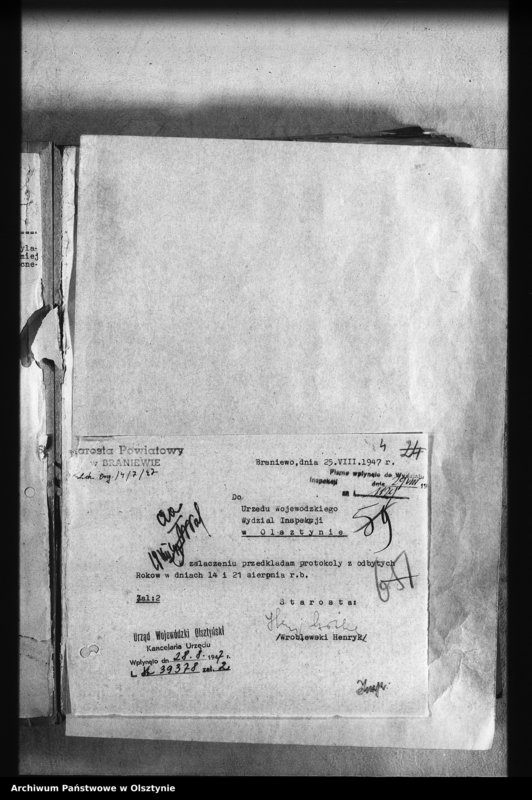 Starosta Powiatowy
w BRANIEWIE
24
Braniewo,dnia 25.VIII.1947 r.
Pismo wpłynęło do Wydziału
Inspekcji dnia
Do
Urzedu Wojewodzkiego
Wydzial Inspekcji
w Olsztynie
59
W zalaczeniu przedkladam protokoly z odbytych
Rokow w dniach 14 i 21 sierpnia r.b.
Zal:2
Starosta:
/Wroblewski Henryk/
Urząd Wojewódzki Olsztyński
Kancelaria Urzędu
Wpłynęło dn. 28.8.1947 r.
L. 39378 zał. 2
Archiwum Państwowe w Olsztynie